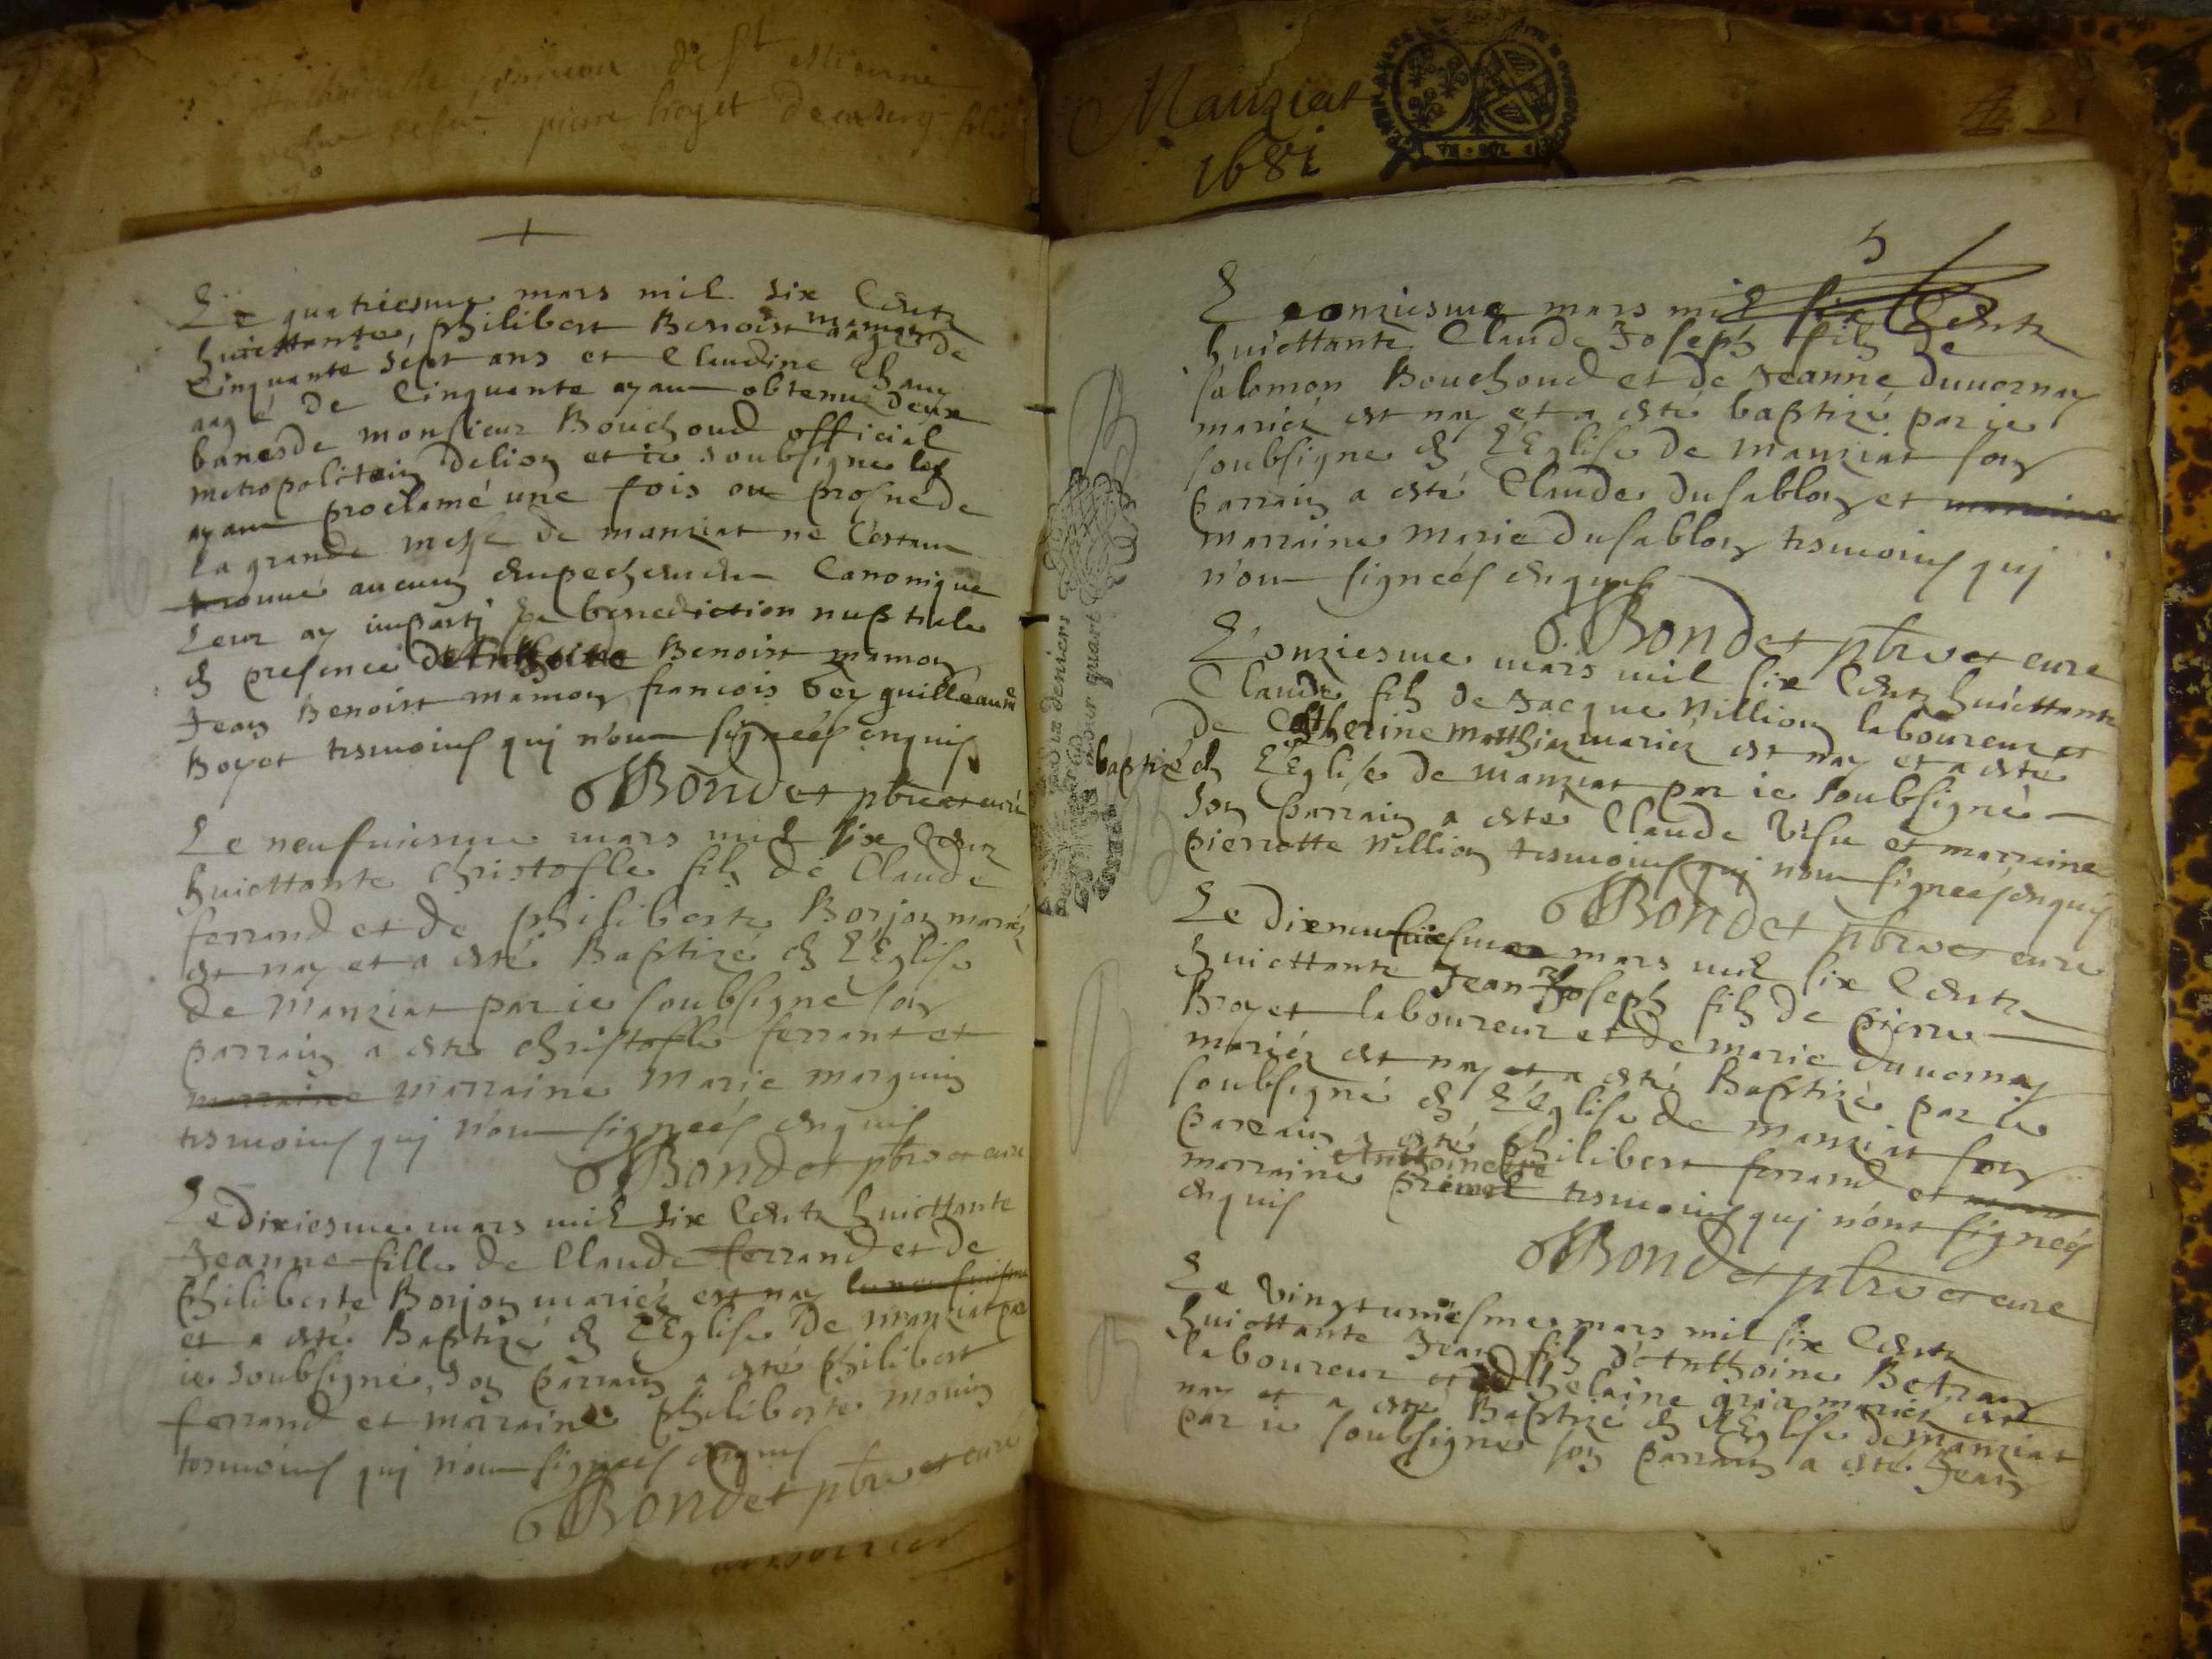 pierre broyet
Le quatriesme mars mil six Centz
huicttante, philibert Benoist mamon aagé de
Cinquante sept ans et Claudine
aagé de Cinquante ayant obtenu deux
bancs de monsieur Bouchoud official
metropolitain delion et ie soubsigne les
ayant proclamé une fois au prosne de
la grande messe de manziat ne sestant
trouué aucun empechement Canonique
Leur ay imparti la benediction nuptiale
en presence de Anthoine Benoist mamon
Jean Benoist mamon francois guilleaume
Boyet tesmoins qui n'ont signeés enquis
Bondet pbre et curé
Le neufuiesme mars mil six Centz
huicttante christofle filz de Claude
ferrand et de philiberte Borjon mariéz
est nay et a esté Baptizé en L'Eglise
de Manziat par ie soubsigné son
parrain a esté christofle ferrant et
marraine marraine Marie marguin
tesmoins qui n'ont signeés enquis
Bondet pbre et curé
Le dixiesme mars mil six Centz huicttante
Jeanne fille de Claude ferrand et de
philiberte Borjon mariéz est nay le neufuiesme
et a esté Baptizé en L'Eglise de manziat par
ie soubsigné, son parrain a esté philibert
ferrand et marraine philiberte monin
tesmoins qui n'ont signeés enquis
Bondet pbre et curé
Manziat
1681
5
L'onziesme mars mil six Centz
huicttante Claude Joseph filz de
salomon Bouchoud et de Jeanne duuernay
mariéz est nay et a esté baptizé par ie
soubsigne en L'Eglise de manziat son
parrain a esté Claude dusablon et marraine
marraine marie dusablon tesmoins qui
n'ont signeés enquis
Bondet pbre et curé
L'onziesme mars mil six Centz huicttante
Claude filz de Jacque Nillion laboureur et
de Catherine Matthias mariéz est nay et a esté
baptizé en L'Eglise de manziat par ie soubsigné
son parrain a esté Claude Visu et marraine
pierrette Nillion tesmoins qui n'ont signeés enquis
Bondet pbre et curé
Le dixneufuiesme mars mil six Centz
huicttante Jean Joseph filz de pierre
Broyet laboureur et de marie duuernay
mariéz est nay et a esté Baptizé par ie
soubsigné en L'Eglise de manziat son
parrain a esté philibert ferrand et marr
marraine Anthoinette tesmoins qui n'ont signeés
enquis
Bondet pbre et curé
Le vingtuniesme mars mil six Centz
huicttante Jean filz d'Anthoine Betran
laboureur et d'helaine mariéz est
nay et a esté Baptizé en L'Eglise de manziat
par ie soubsigne son parrain a esté Jean